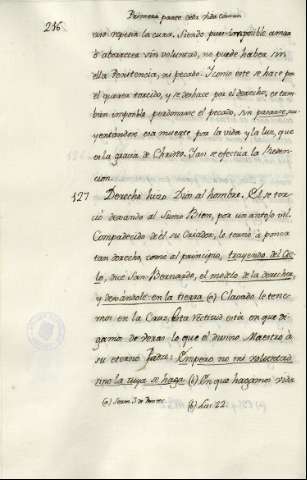 216
Primera parte dela vida comun
mo repeia la cura. Siendo pues imposible amar
ò aborrecer sin voluntad, no puede haber sin
ella Penitencia, ni pecado. I como este se hace por
el querer torcido, y se deshace por el derecho; es tam-
bien imposible perdonarse el pecado, sin pararse, su-
yentandose esa muerte por la vida y la luz, que
es la gracia de Christo. Tan se efectúa la Reden-
cion.
127 Derecho hizo Dios al hombre. El se tor-
ció dexando al Sumo Bien, por un antojo vil.
Compadecido de èl su Criador, le tornó à poner
tan derecho, como al principio, trayendo del Cie-
lo, dice San Bernardo, el modelo de la derechez,
y dexándole en la tierra (a) Clavado le tene-
mos en la Cruz. Esta rectitud está en que di-
gamos de veras lo que el divino Maestro à
su eterno Padre: Empero no mi voluntad,
sino la tuya se haga (b) En que hagamos vida
(a) Serm. 3 de Advent.
(b) Luc. 22.